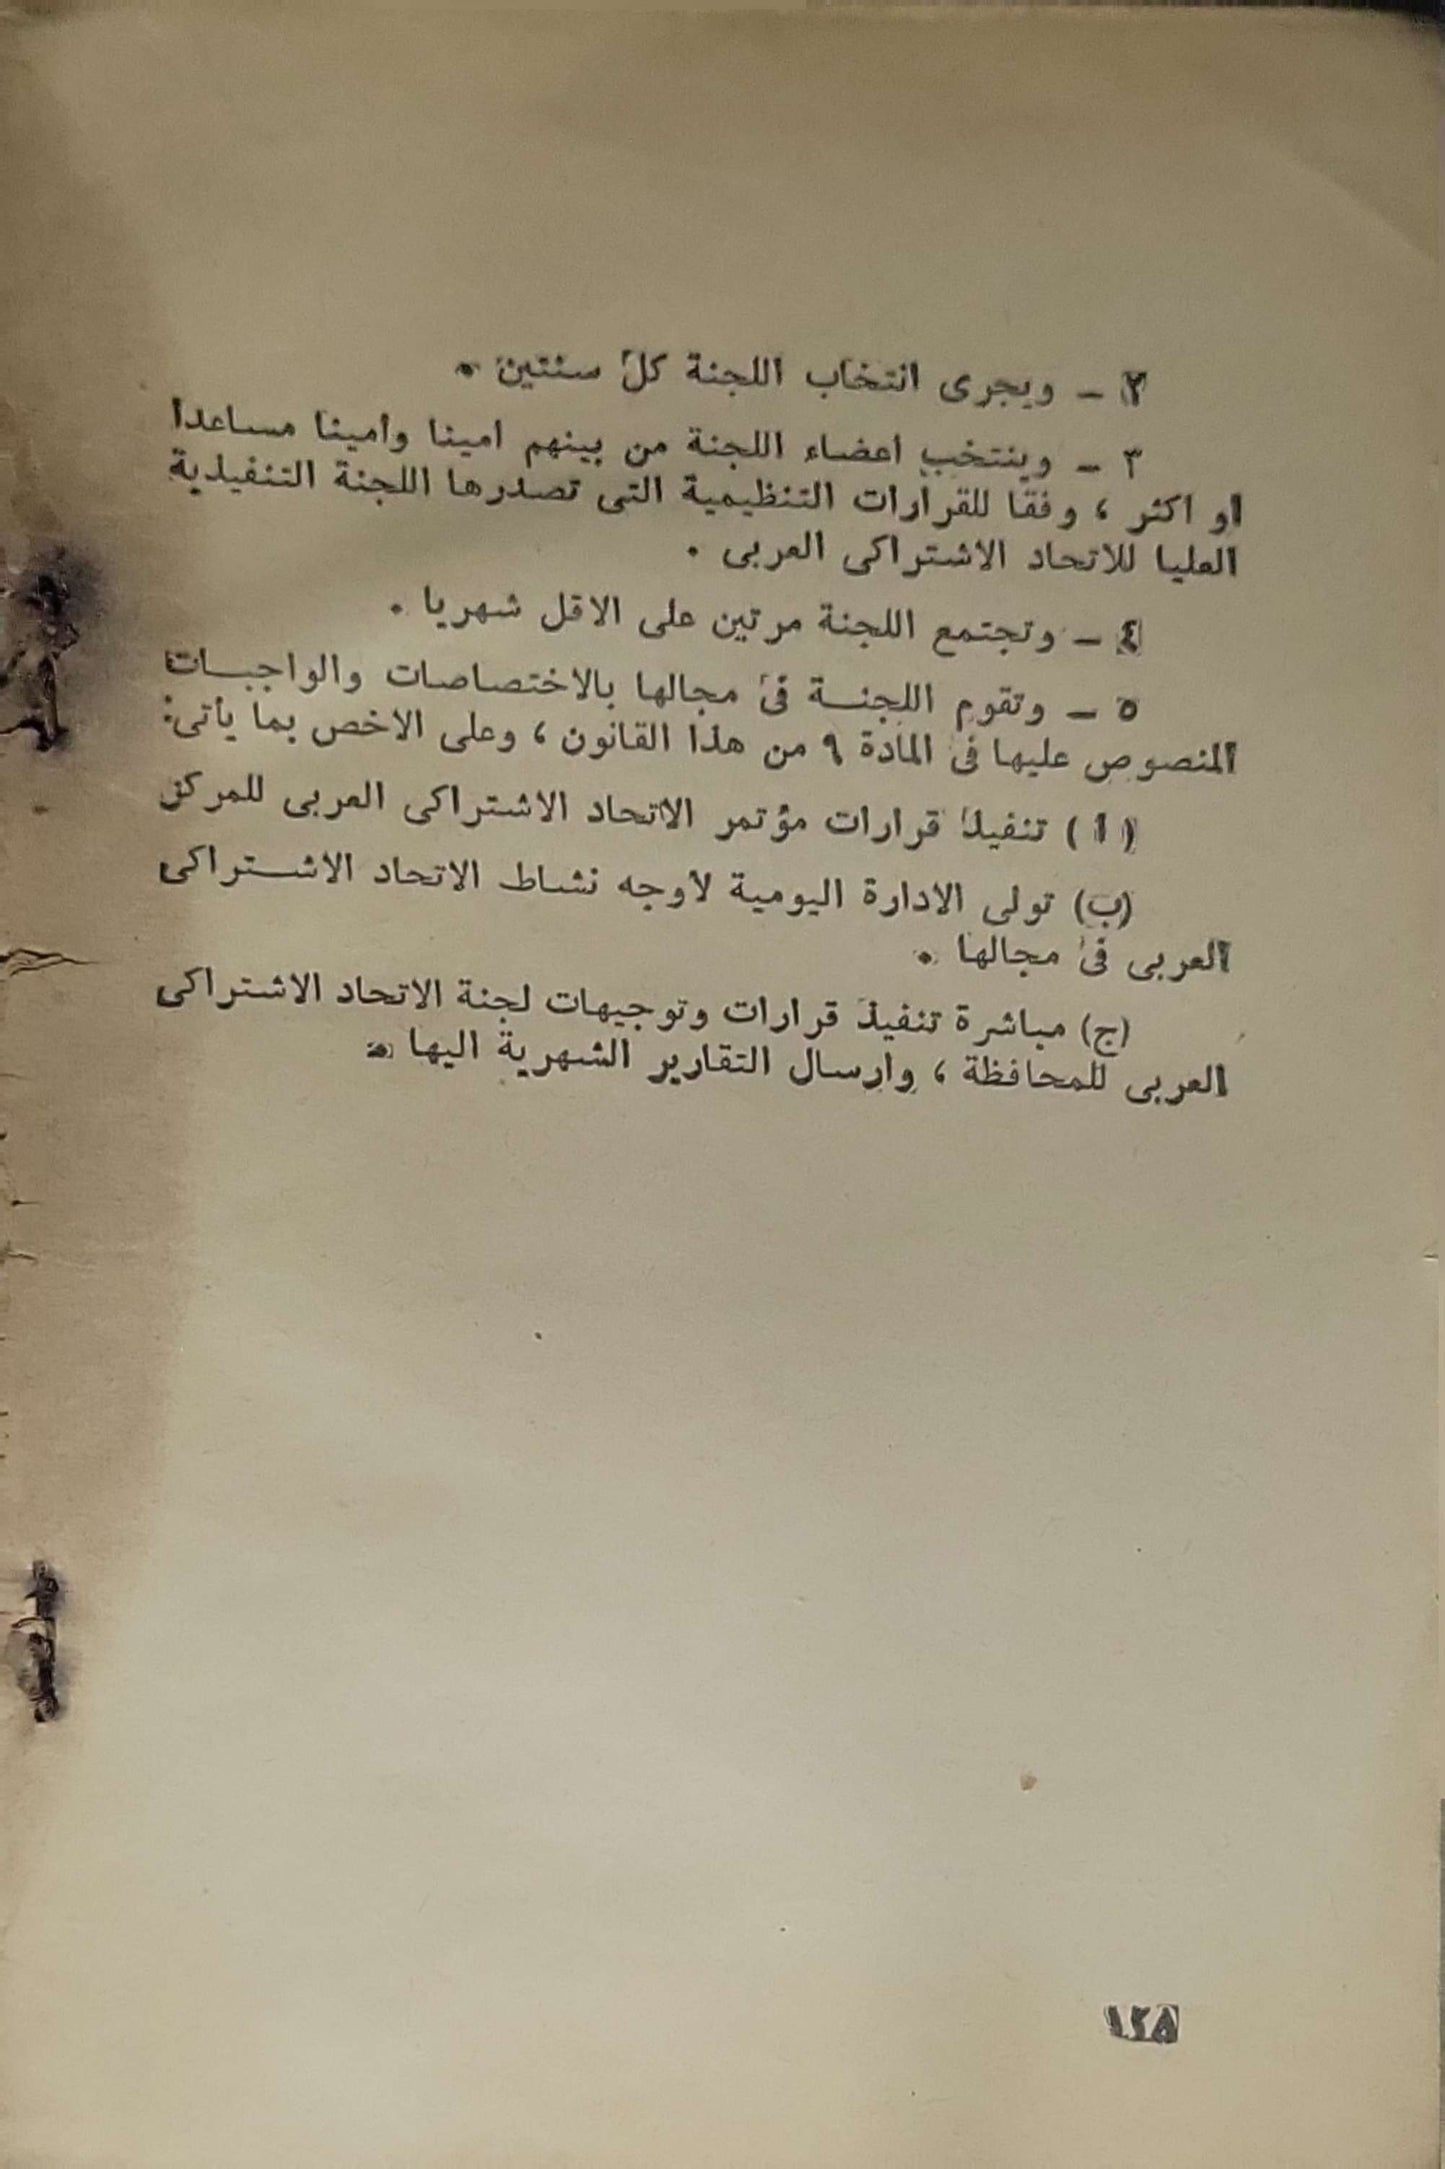 ٢ - ويجرى انتخاب اللجنة كل سنتين .
٣ - وينتخب اعضاء اللجنة من بينهم امينا وامينا مساعدا
او اكثر ، وفقا للقرارات التنظيمية التى تصدرها اللجنة التنفيذية
العليا للاتحاد الاشتراكى العربى .
٤ - وتجتمع اللجنة مرتين على الاقل شهريا .
٥ - وتقوم اللجنــة فى مجالها بالاختصاصات والواجبــات
المنصوص عليها فى المادة ٩ من هذا القانون ، وعلى الاخص بما يأتى:
(ا) تنفيذ قرارات مؤتمر الاتحاد الاشتراكى العربى للمركز
(ب) تولى الادارة اليومية لاوجه نشاط الاتحاد الاشــتراكى
العربى فى مجالها .
(ج) مباشرة تنفيذ قرارات وتوجيهات لجنة الاتحاد الاشتراكى
العربى للمحافظة ، وارسال التقارير الشهرية اليها .
١٢٨